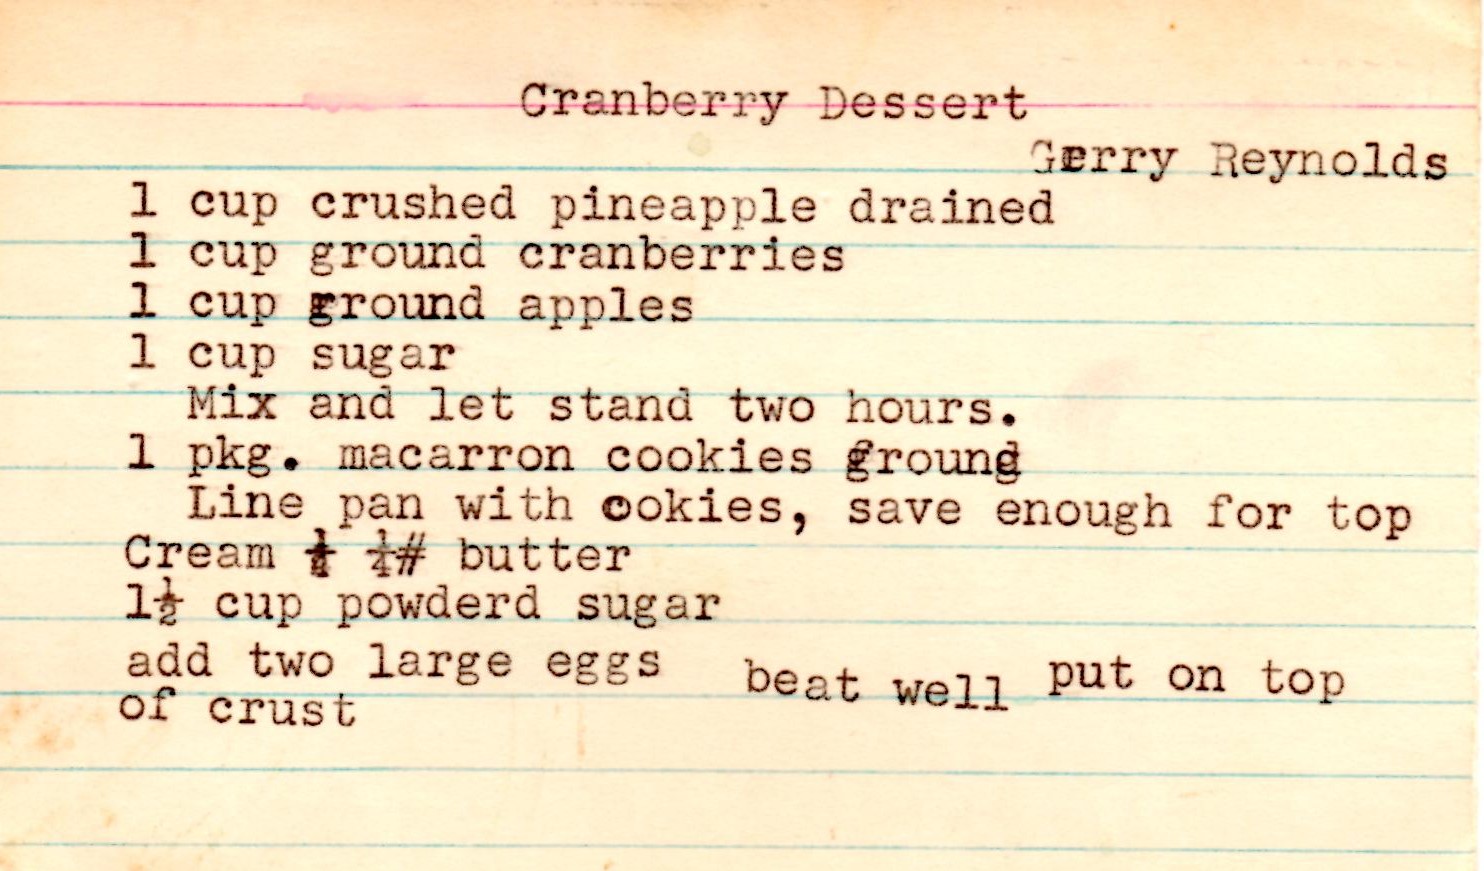 Cranberry Dessert
Gerry Reynolds
1 cup crushed pineapple drained
1 cup ground cranberries
1 cup ground apples
1 cup sugar
Mix and let stand two hours.
1 pkg. macarron cookies ground
Line pan with cookies, save enough for top
Cream ¼# butter
1½ cup powderd sugar
add two large eggs beat well put on top
of crust